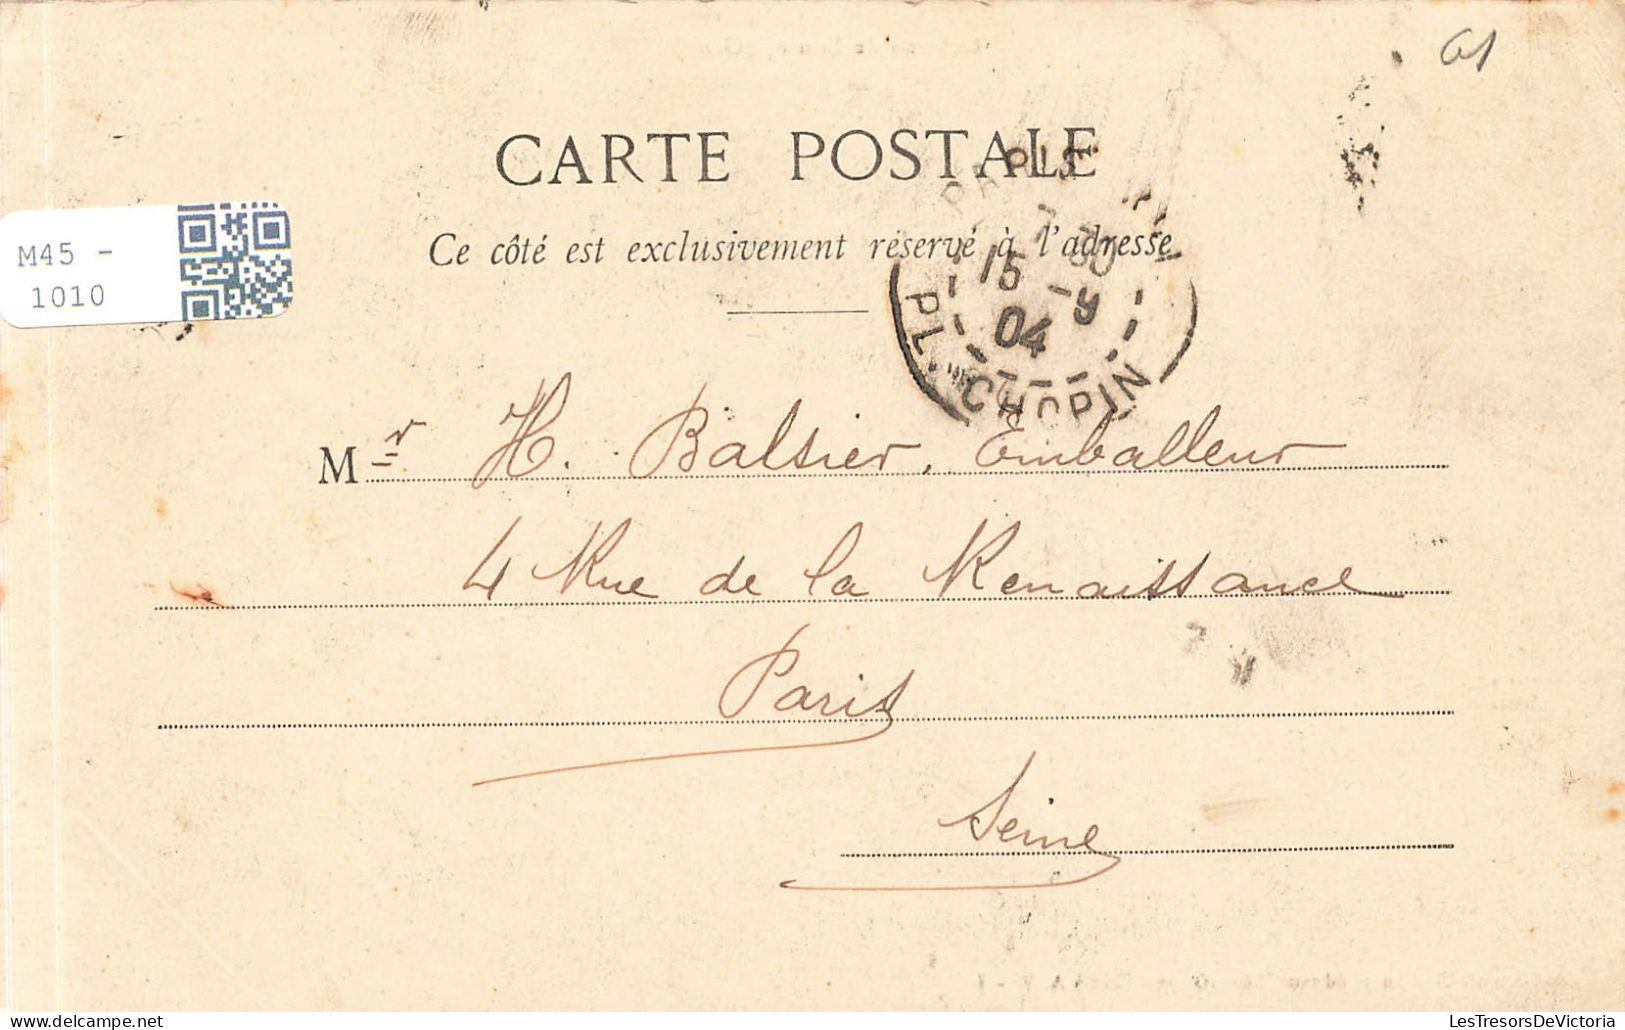 61
CARTE POSTALE
Ce côté est exclusivement réservé à l'adresse
M45 -
1010
PARIS
15 -9
04
PL. CHOPIN
Mr H. Balsier, Emballeur
4 Rue de la Renaissance
Paris
Seine
LesTresorsDeVictoria